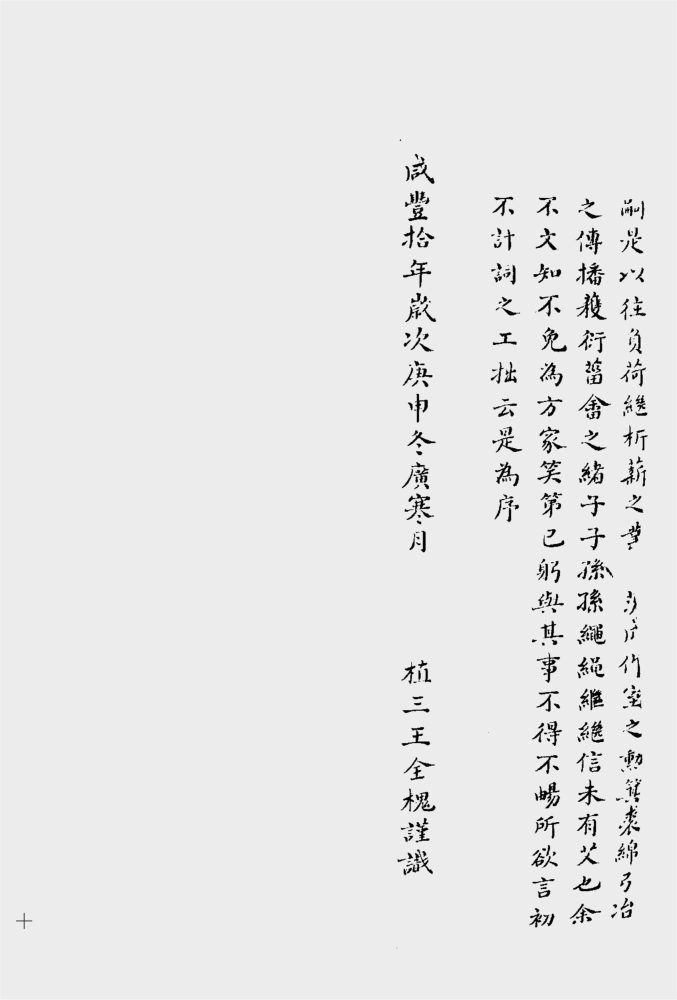 嗣是以往負荷繼析薪之業 作室之勳箕裘綿弓冶
之傳播穫衍菑畬之緒子子孫孫繩繩繼繼信未有艾也余
不文知不免為方家笑第已躬與其事不得不暢所欲言初
不計詞之工拙云是為序
咸豐拾年嵗次庚申冬廣寒月
植三王全槐謹識